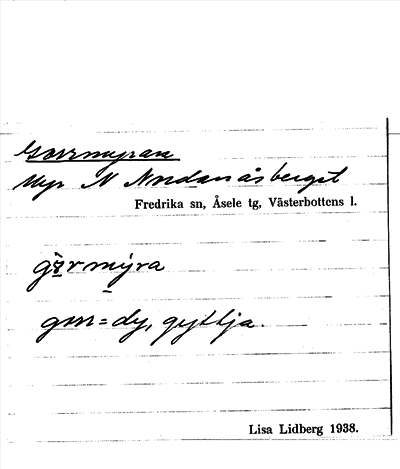 Gorrmyran
Myr N Nordanåsberget
Fredrika sn, Åsele tg, Västerbottens l.
gorr = dy, gyttja.
Lisa Lidberg 1938.